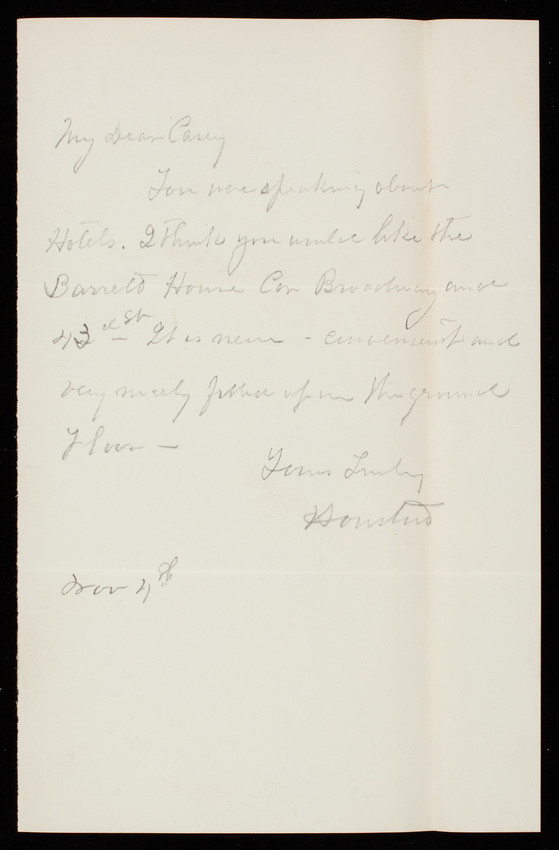 My Dear Casey
You were speaking about
Hotels. I think you would like the
Barrett House Cor Broadway and
43d St It is new - convenient and
very nicely fitted up on the ground
floor —
Yours Truly
Nov 4th